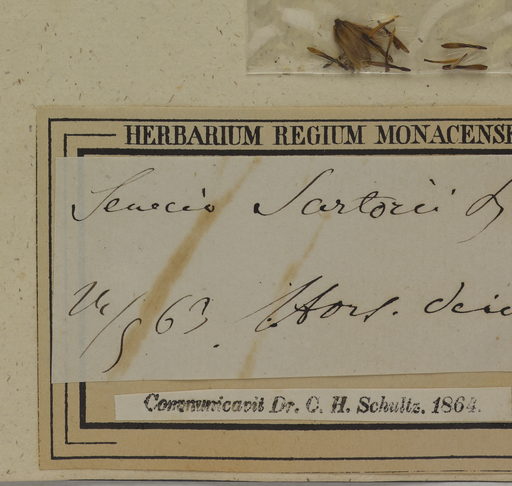 HERBARIUM REGIUM MONACENSE
Senecio Sartorii
63. Hort.
Communicavit Dr. C. H. Schultz. 1864.